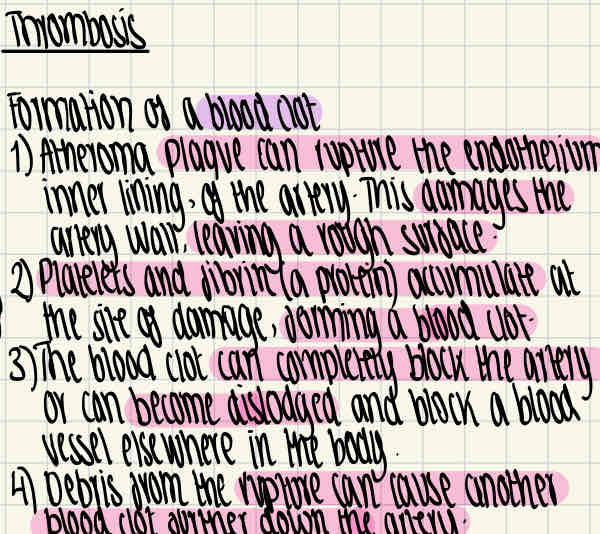 Thrombosis
Formation of a blood clot
1) Atheroma plaque can rupture the endothelium
inner lining, of the artery. This damages the
artery wall, leaving a rough surface.
2) Platelets and fibrin (a protein) accumulate at
the site of damage, forming a blood clot.
3) The blood clot can completely block the artery
or can become dislodged and block a blood
vessel elsewhere in the body.
4) Debris from the rupture can cause another
blood clot further down the artery.